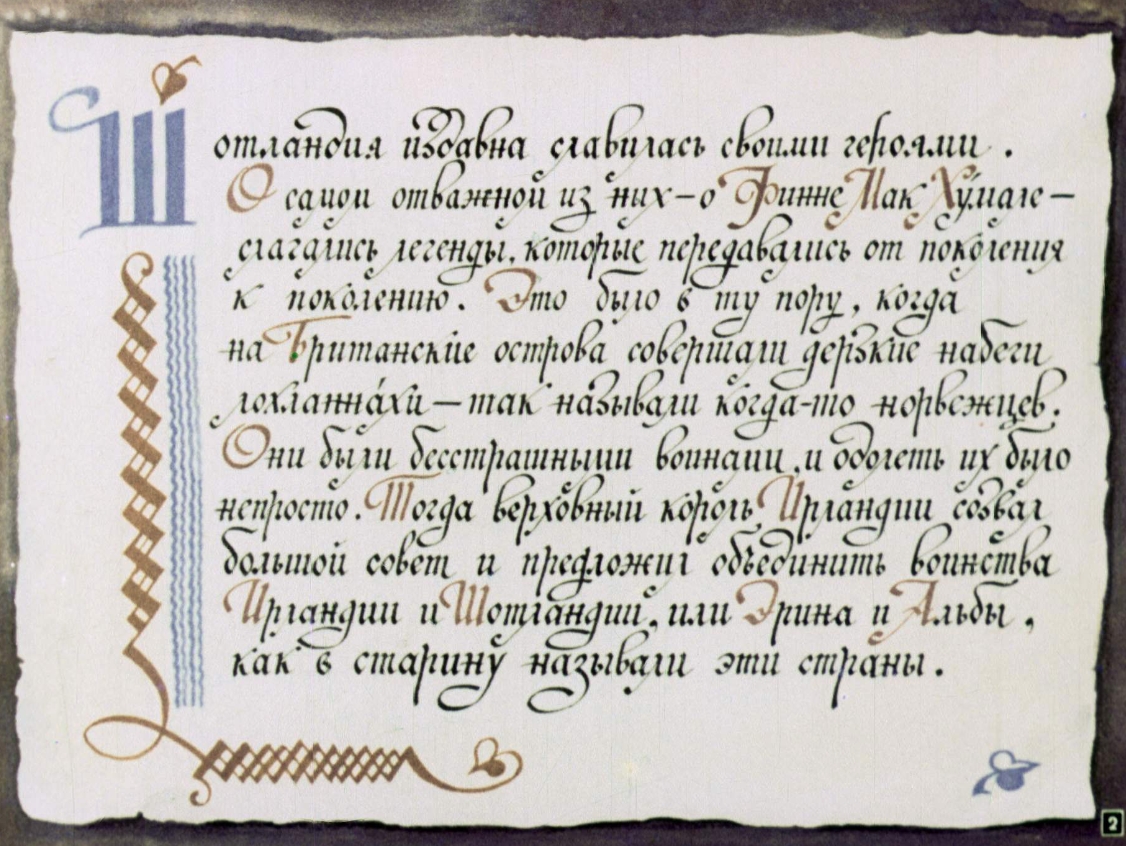 Шотландия издавна славилась своими героями.
О самом отважном из них – о Финне Мак Хумале –
слагались легенды, которые передавались от поколения
к поколению. Это было в ту пору, когда
на Британские острова совершали дерзкие набеги
лохланна́хи – так называли когда-то норвежцев.
Они были бесстрашными воинами, и одолеть их было
непросто. Тогда верховный король Ирландии созвал
большой совет и предложил объединить воинства
Ирландии и Шотландии, или Эрина и Альбы,
как в старину называли эти страны.
2